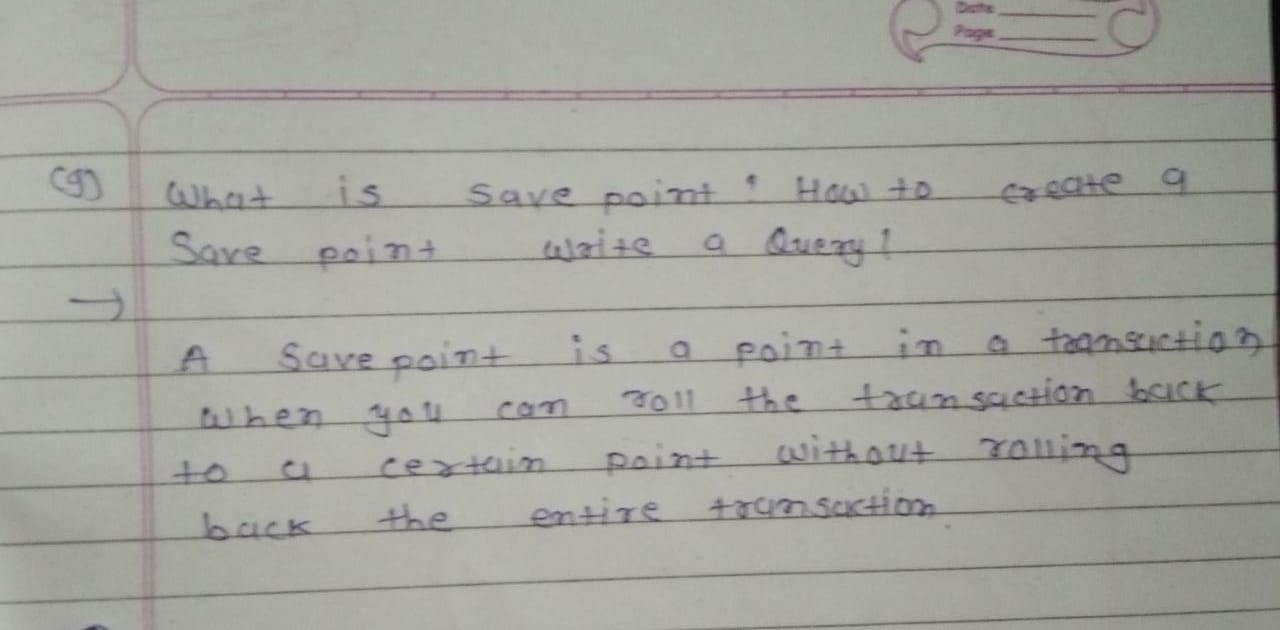 Date
Page
(g) What is save point? How to create a
Save point write a Query!
→
A Savepoint is a point in a transaction
when you can roll the transaction back
to a certain point without rolling
back the entire transaction